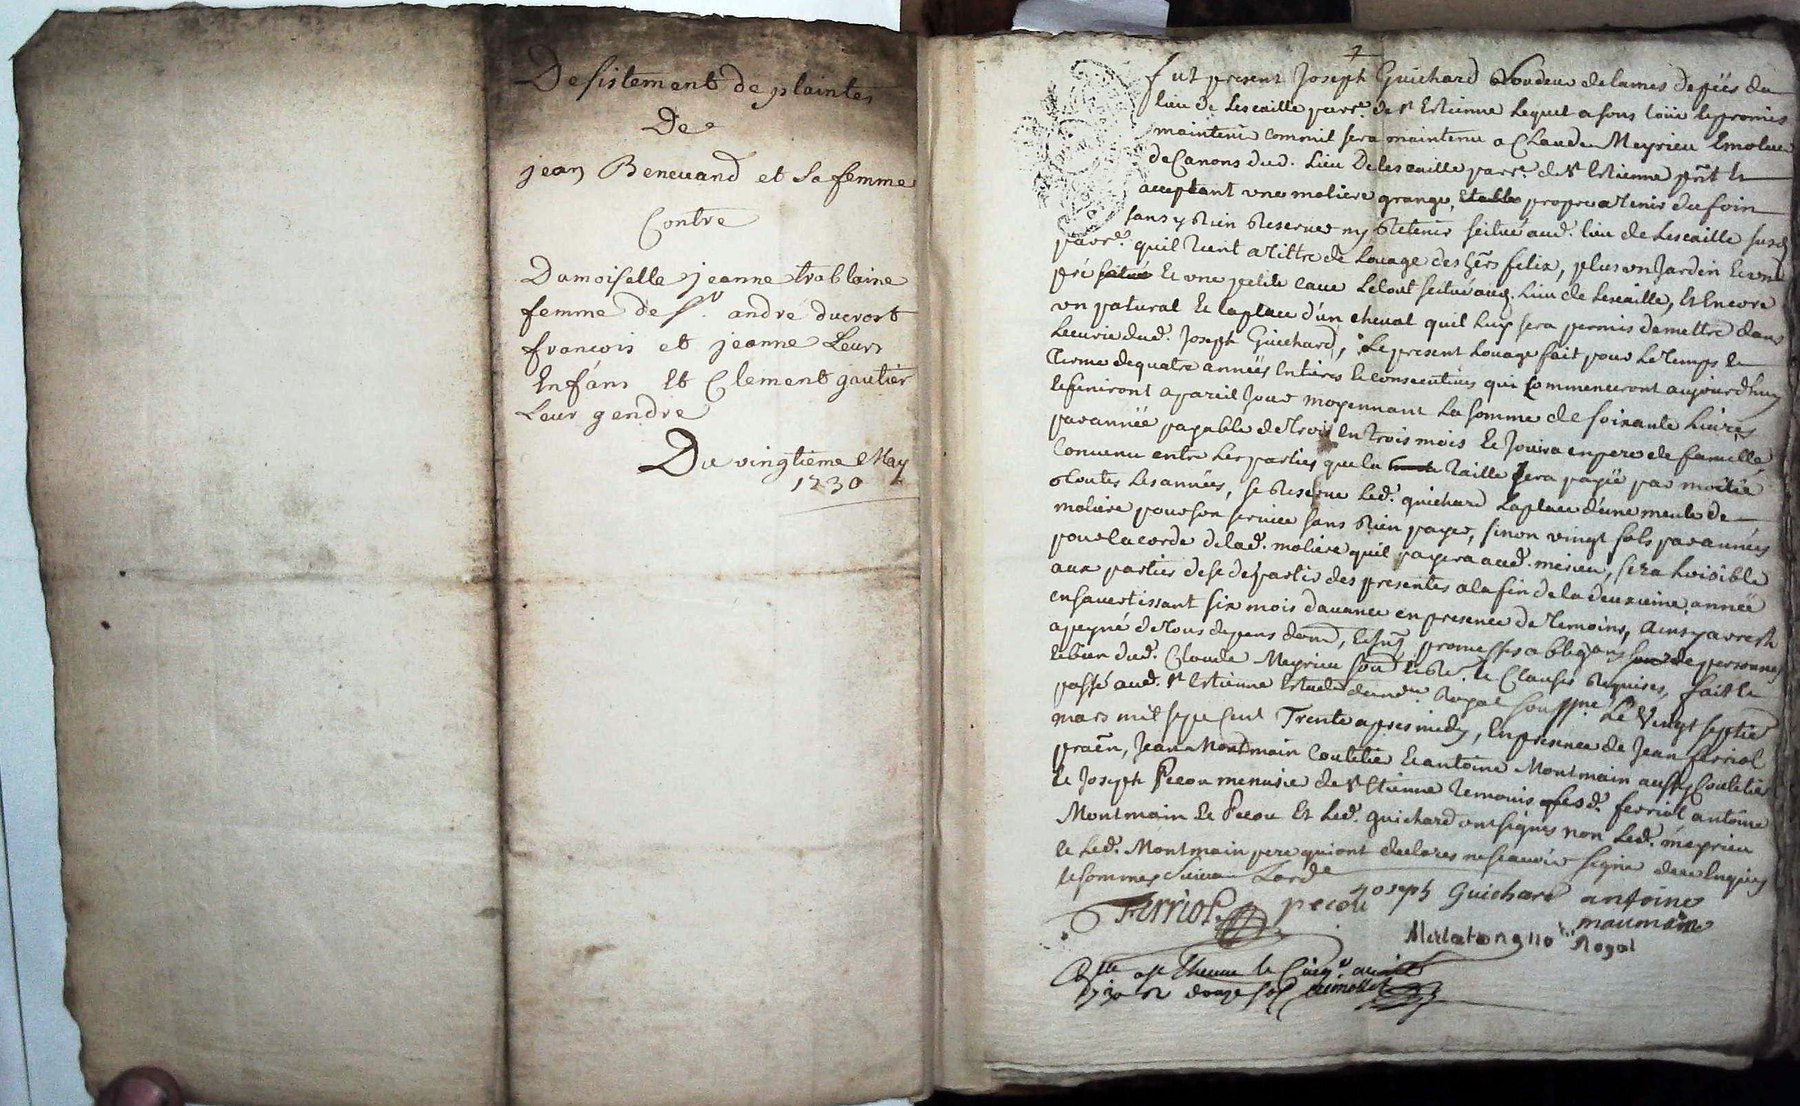 Desistement de plaintes
De
jean Beneuand et sa femme
Contre
Damoiselle jeanne trablaine
femme de Sr. andré ducrost
francois et jeanne Leurs
Enfans et Clement gautier
Leur gendre
Du vingtieme May
1730
fut present Joseph Guichard Soudeur de lames depées du
lieu de Lescaille parr.e de St Estienne Lequel a sous loüé et promis
maintenir comm'il sera maintenu a Claude Meyrieu Emoleur
de Canons dud. Lieu De lescaille parr.e de St Estienne pñt et
acceptant une moliere grange, Etable propre a tenir du foin
sans y Rien Reserver ny Retenir scitué aud. lieu de Lescaille susd.
parr.e quil tient a tiltre de Louage des Srs felix, plus un Jardin et un
pré et une petite cave Le tout scitué aud. Lieu de Lescaille, Et Encore
un patural et la place d'un cheval quil luy sera permis de mettre dans
Lecurie dud. Joseph Guichard, Le present Louage fait pour Le temps et
Terme de quatre années Entieres et consecutives qui Commenceront aujourdhuy
et finiront a pareil Jour moyennant la somme de soixante livres
par année payable de trois En trois mois et Jouira en pere de famille
Convenu entre Les parties que la taille sera payée par moitié
toutes les années, se Reserve Led. guichard La place d'une meule de
moliere pour son service sans Rien payer, sinon vingt sols par années
pour la corde de lad. moliere quil payera aud. mérieu, sera Loisible
aux parties de se departir des presentes a la fin de la deuxieme année
en s'avertissant six mois d'avance en presence de temoins, Ainsy arresté
a peyne de tous depens dom, promesses obligãons de personnes
et bien dud. Claude Meyrieu et Clauses Requises, fait et
passé aud. St Estienne Estude du nore Royal soussigné Le Vingt septie
mars mil sept cent Trente apres midy, En presence de Jean ferriol
praẽn, Jean Montmain Coutelier et antoine Montmain aussy Coutelier
et Joseph Pecou menusier de St Etienne temoins lesd. ferriol antoine
Montmain et Pecou et Led. guichard ont signés non Led. méyrieu
et led. Montmain pere qui ont declarés ne scavoir signer de ce Enquis
et sommés suivant Lord.e
Ferriol pecou Joseph Guichard antoine
maumain
Royal